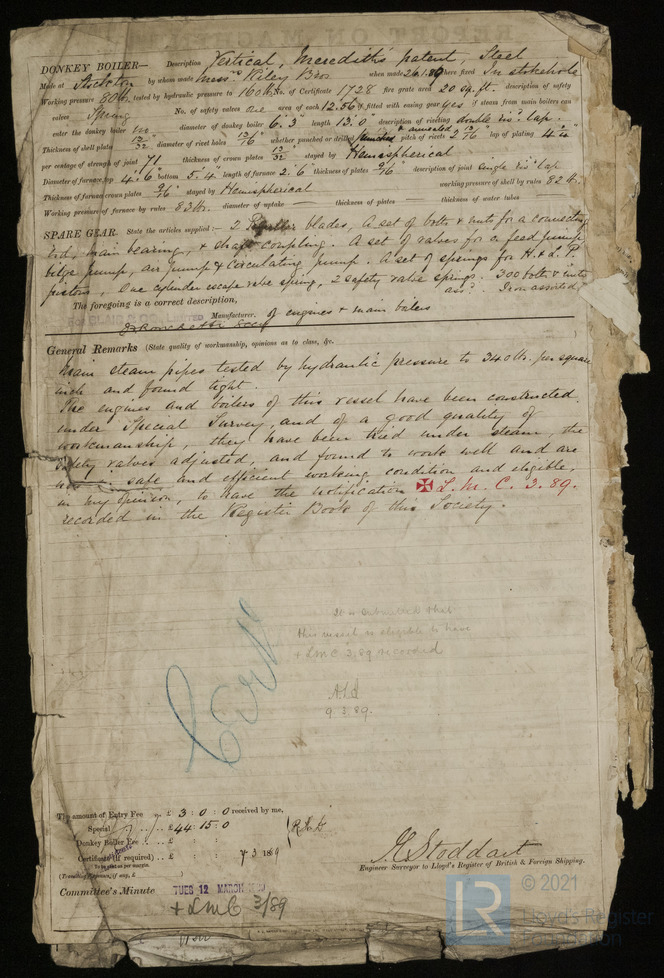 DONKEY BOILER— Description Vertical, Meredith's patent, Steel
Made at Stockton by whom made Messrs Riley Bros when made 26.1.89 where fixed In stokehold
Working pressure 80lb. tested by hydraulic pressure to 160 lb. No. of Certificate 1728 fire grate area 20 sq. ft. description of safety
valves Spring No. of safety valves one area of each 12.56 if fitted with easing gear yes if steam from main boilers can
enter the donkey boiler no diameter of donkey boiler 6'.3" length 13'.0" description of riveting double riv. lap.
Thickness of shell plates 13/32 diameter of rivet holes 13/16" whether punched or drilled punched & annealed pitch of rivets 2 13/16" lap of plating 4 1/4"
per centage of strength of joint 71 thickness of crown plates 13/32" stayed by Hemispherical
Diameter of furnace, top 4'.6" bottom 5'.4" length of furnace 2'.6" thickness of plates 9/16" description of joint single riv. lap
Thickness of furnace crown plates 9/16" stayed by Hemispherical working pressure of shell by rules 82 lb.
Working pressure of furnace by rules 83 lb. diameter of uptake — thickness of plates — thickness of water tubes —
SPARE GEAR. State the articles supplied:— 2 Propeller blades, A set of bolts & nuts for a connecting
rod, main bearing, & shaft coupling. A set of valves for a feed pump
bilge pump, air pump & circulating pump. A set of springs for H. & L. P.
pistons, One cylinder escape valve spring, 2 safety valve springs. 300 bolts & nuts
asstd. Iron assorted
The foregoing is a correct description,
FOR BLAIR & CO. LIMITED Manufacturer. of engines & main boilers
General Remarks (State quality of workmanship, opinions as to class, &c.
Main steam pipes tested by hydraulic pressure to 340 lb. per square
inch and found tight.
The engines and boilers of this vessel have been constructed
under Special Survey, and of a good quality of
workmanship, they have been tried under steam, the
safety valves adjusted, and found to work well and are
now in safe and efficient working condition and eligible,
in my opinion, to have the notification ✠ L. M. C. 3. 89.
recorded in the Register Book of this Society.
It is submitted that
this vessel is eligible to have
+ LMC 3.89 recorded
9.3.89.
Cert
The amount of Entry Fee .. £ 3 : 0 : 0 received by me,
Special .. .. £ 44 : 15 : 0
Donkey Boiler Fee .. .. £ : :
Certificate (if required) .. £ : : 7 3 1889
To be sent as per margin.
(Travelling Expenses, if any, £ )
J. Stoddart
Engineer Surveyor to Lloyd's Register of British & Foreign Shipping.
Committee's Minute TUES 12 MARCH 1889
+ LMC 3/89
LR
© 2021
Lloyd's Register
Foundation